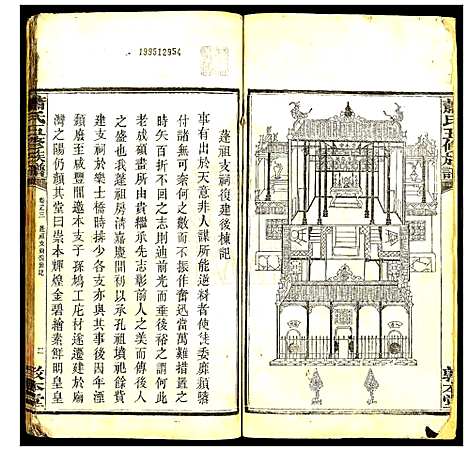 蕭氏五修族譜
敦本堂
蓬祖支祠復建後棟記
事有出於天意非人謀所能逆料者使徒委靡頹
付諸無可奈何之數而不振作奮迅當萬難措置之
時矢百折不回之志則迪前光而垂後裕之謂何此
老成碩畫所由貴繼承先志彰前人之美而傳後人
之盛也我蓬祖房清嘉慶間初以承孔祖墳祀餘貲
建支祠於樂士橋時採少各支亦與其事後因年湮
頹廢至咸豐間遯本支子孫塢工庀材遂遷建於廟
灣之陽仍顏其堂曰崇本輝煌金碧繪素鮮明皇皇
蕭氏五修族譜
卷之三
敦本堂
199512954